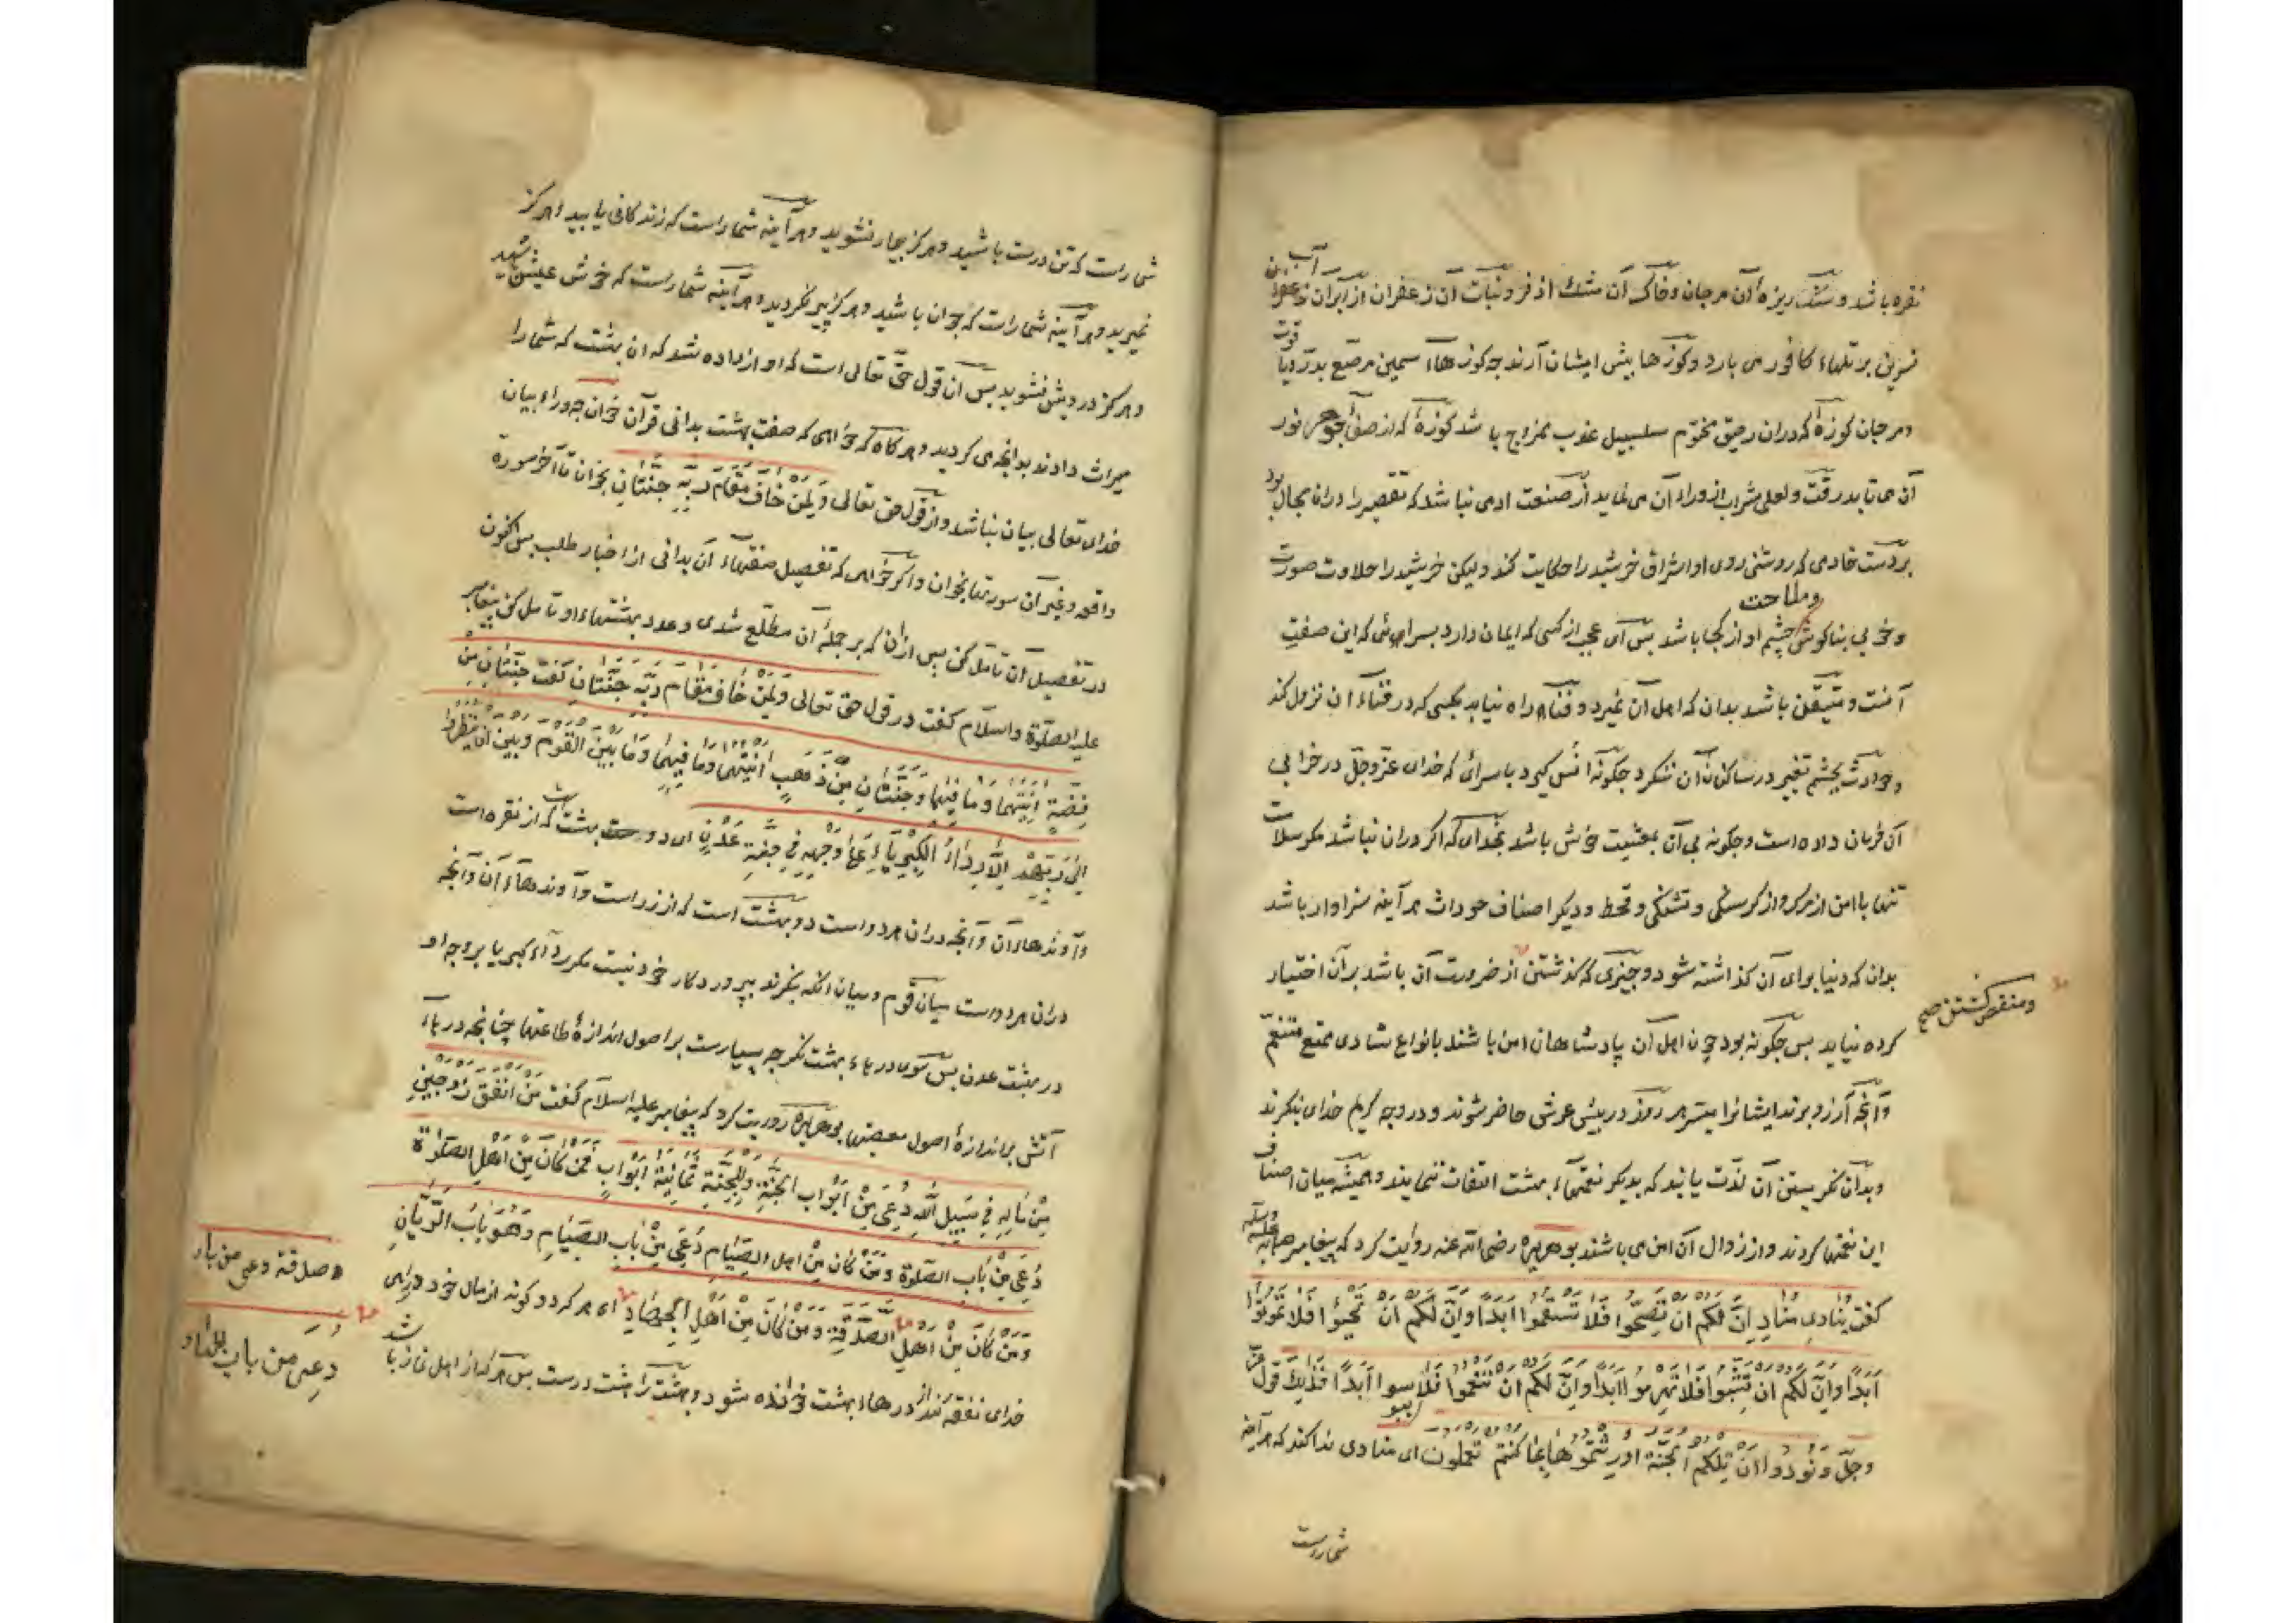 نقره باشد و سنگ ریزهٔ آن مرجان و خاک آن مشک اذفر و نبات آن زعفران از آبران آب
نسرین بر تلهاء کافور می بارد و کوزها پیش ایشان آرند چه کوزهاء سیمین مرصّع بدرّ و یاقوت
و مرجان کوزهٔ که دران رحیق مختوم سلسبیل عذب ممزوج باشد کوزهٔ که از صفای جوهر نور
آن می تابد رقّت و لعلی شراب از وراء آن می نماید از صنعت ادمی نباشد که تقصیر را دران مجال بود
بر دست خادمی که روشنی روی او اشراق خرشید را حکایت کند و لیکن خرشید را حلاوت صورت
وملاحت
و خوبی بناکوش چشم او از کجا باشد پس ای عجب از کسی که ایمان دارد بسرای که این صفت
آنست و متیقّن باشد بدان که اهل آن نمیرد و فنا را راه نیابد بکسی که در فناء آن نزول کند
و حوادث بچشم تغییر در ساکنان آن ننکرد چکونه انس کیرد با سرای که خدای عزّ وجلّ در خرابی
آن فرمان داده است و چکونه بی آن بمعیشت خوش باشد بخدای که اکر دران نباشد مکر سلامت
تنها با امن از مرک و از کرسنکی و تشنکی و قحط و دیکر اصناف حوادث هر آینه سزاوار باشد
بدان که دنیا برای آن کذاشته شود و چیزی که کذشتن از ضرورت آن باشد بر آن اختیار
ومنغص کشتن صح
کرده نیاید پس چکونه بود چون اهل آن پادشاهان امن باشند بانواع شادی ممتع متنعّم
و آنچه آرزو برند ایشانرا میسّر هر روز در پیش عرش حاضر شوند و در وجه کریم خدای بنکرند
و بدان نکریستن آن لذّت یابند که بدیکر نعمتهاء بهشت التفات ننمایند و همیشه میان اصناف
این نعمتها کردند و از زوال آن امن می باشند بوهریره رضی الله عنه روایت کرد که پیغامبر
کفت ینادی مناد اِنّ لکم ان تصحّوا فلا تسقموا ابدا وانّ لکم ان تحیوا فلا تموتوا
اَبَدًا وانّ لکم ان تشبّوا فلا تهرموا ابدا وانّ لکم ان تنعموا فلا ابدا فذلک قول عزّ
وجلّ ونُودوا ان تلکم الجنّة اورثتموها بما کنتم تعملون ای منادی ندا کند که هرآینه
شماراست
شماراست که تن درست باشید و هرکز بیمار نشوید و هر آینه شماراست که زندکانی یابید و هرکز
نمیرید و هر آینه شماراست که جوان باشید و هرکز پیر نکردید و هر آینه شماراست که خوش عیش باشید
و هرکز درویش نشوید پس آن قول حقّ تعالی است که اواز داده شد که ان بهشت که شما را
میراث دادند بدانچه می کردید و هرکاه که خواهی که صفت بهشت بدانی قرآن خوان چه وراء بیان
خدای تعالی بیان نباشد و از قول حق تعالی ولمن خاف مقام ربّه جنّتان بخوان تا آخر سورة
واقعه و غیر آن سورتها بخوان و اکر خواهی که تفصیل صفتهاء آن بدانی از اخبار طلب پس اکنون
در تفصیل آن تامّل کن پس ازان که بر جملهٔ ان مطّلع شدی و عدد بهشتهاء او تامل کن پیغامبر
علیه الصلوة والسلام کفت در قول حق تعالی ولمن خاف مقام ربّه جنّتان کفت جنّتان من
فضّة اٰنیتهما وما فیهما وجنّتان من ذهب اٰنیتهما وما فیهما وما بین القوم وبین ان ینظروا
الی ربّهم الّا رداء الکبریاء علی وجهه فی جنّة عدن ای دو بهشت که از نقره است
و آوندهاء آن و آنچه دران هر دو است دو بهشت است که از زر است و آوندهاء آن و آنچه
دران هر دو است میان قوم و میان انکه بنکرند بپروردکار خود نیست مکر رداء کبریا بر وجه او
در بهشت عدن پس سوی درهاء بهشت نکر چه بسیارست بر اصول اندازهٔ طاعتها چنانچه درهاء
آتش بر اندازهٔ اصول معصیتها بوهریره روایت کرد که پیغامبر علیه السلام کفت من انفق زوجین
من ماله فی سبیل الله دعی من ابواب الجنّة وللجنّة ثمانیة ابواب فمن کان من اهل الصلوة
دُعی من باب الصّلوة ومن کان من اهل الصّیام دُعی من باب الصّیام وهو باب الرّیّان
ومن کان من اهل الصّدقة ومن کان من اهل الجهاد ای هر که دو کونه از مال خود در راه
صدقة دعی من باب
دعی من باب الجهاد
خدای نفقه کند از درهاء بهشت خوانده شود و بهشت را هشت درست پس هرکه از اهل نماز باشد